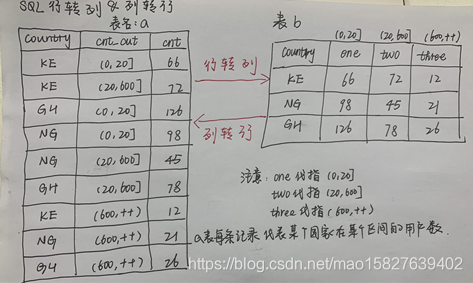 SQL 行转列 & 列转行
表名: a
country cnt_out cnt
KE (0, 20] 66
KE (20, 600] 72
GH (0, 20] 126
NG (0, 20] 98
NG (20, 600] 45
GH (20, 600] 78
KE (600, ++) 12
NG (600, ++) 21
GH (600, ++) 26
行转列
列转行
表 b
(0, 20] (20, 600] (600, ++)
country one two three
KE 66 72 12
NG 98 45 21
GH 126 78 26
注意: one 代指 (0, 20]
two 代指 (20, 600]
three 代指 (600, ++)
a表每条记录代表某个国家在某个区间的用户数.
https://blog.csdn.net/mao15827639402